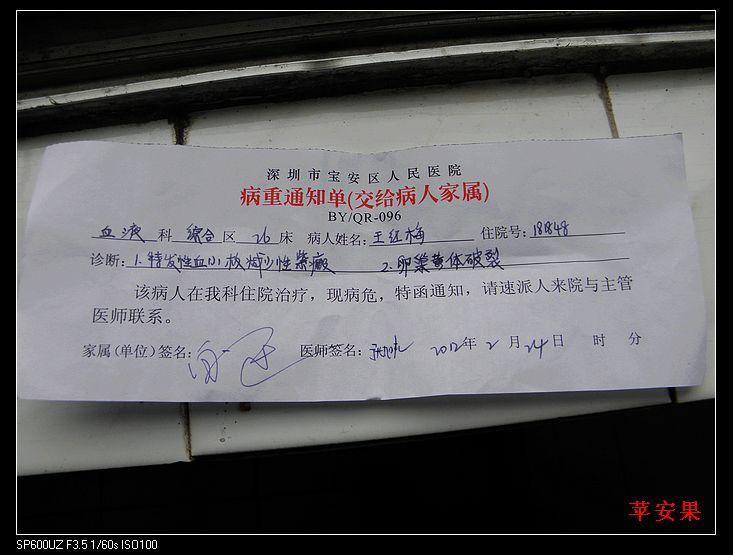 深圳市宝安区人民医院
病重通知单(交给病人家属)
BY/QR-096
血液科 综合区 26床 病人姓名:王红梅 住院号:18848
诊断:1.特发性血小板减少性紫癜 2.卵巢黄体破裂
该病人在我科住院治疗，现病危，特函通知，请速派人来院与主管
医师联系。
家属(单位)签名: 医师签名: 2012年2月24日 时 分
苹安果
SP600UZ F3.5 1/60s ISO100